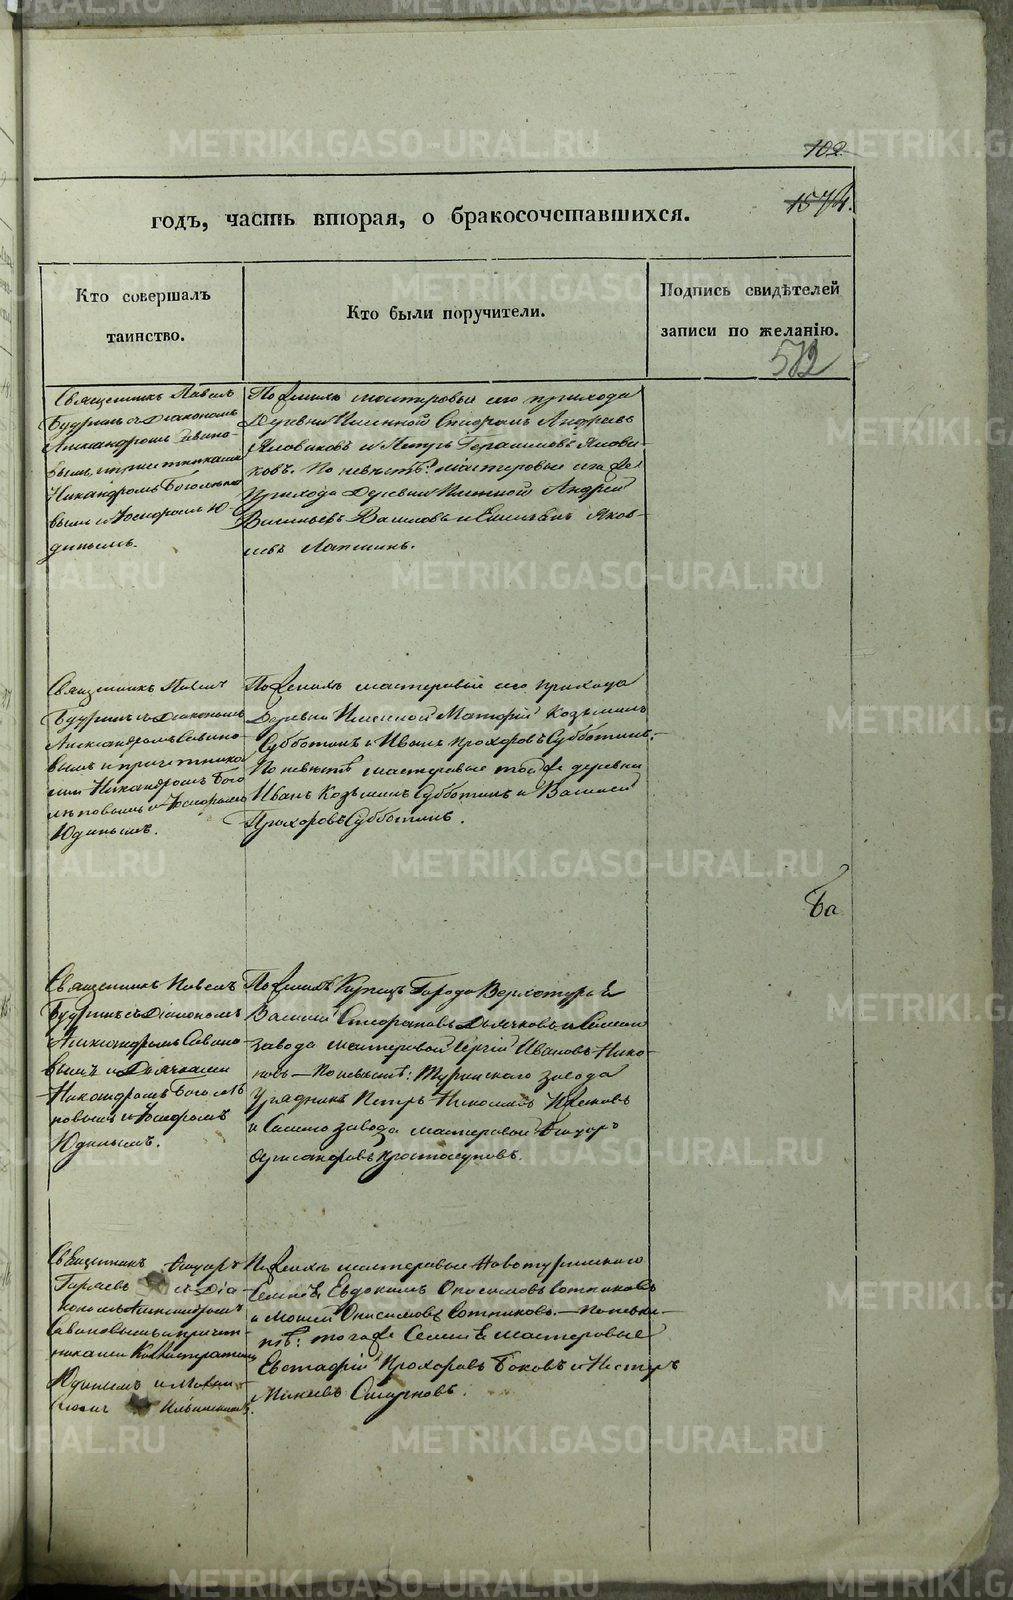 102
1574.
годъ, часть вторая, о бракосочетавшихся.
Кто совершалъ
таинство.
Кто были поручители.
Подпись свидѣтелей
записи по желанію.
572
Священникъ Павелъ
Будринъ съ Діакономъ
Александромъ Савино-
вымъ и причетниками
Никандромъ Боголѣпо
вымъ и Юсифомъ Ю-
динымъ.
По женихѣ мастеровые его прихода
Деревни Именной
и Петръ Герасимовъ
ковъ. По невѣстѣ: мастеровые того же
прихода Деревни Именной Андрей
Васильевъ и Яков-
левъ Лапшинъ.
Священникъ Павелъ
Будринъ съ Діакономъ
Александромъ Савино-
вымъ и причетника
ми Никандромъ Бого
лѣповымъ и Юсифомъ
Юдинымъ.
По женихѣ мастеровые его прихода
Деревни Именной Матфей Козьминъ
Субботинъ и Иванъ Прохоровъ Субботинъ.
По невѣстѣ мастеровые той же деревни
Иванъ Козьминъ Субботинъ и Василей
Прохоровъ Субботинъ.
Ба
Священникъ Павелъ
Будринъ съ Діакономъ
Александромъ Савино
вымъ и Дьячками
Никандромъ Боголѣ
повымъ и Юсифомъ
Юдинымъ.
По женихѣ Купецъ Города Верхотурья
Василій Дьячковъ и
завода мастеровой Сергій Ивановъ Нико-
новъ — По невѣстѣ: Туринскаго завода
Урядникъ Петръ Николаевъ
и завода мастеровой Ѳедоръ
Простолуповъ.
Священникъ Ѳедоръ
и Діа
кономъ Александромъ
Савиновымъ и причет
никами
Юдинымъ и
По женихѣ мастеровые Новотуринскаго
Селенія Евдокимъ Онисимовъ Сотниковъ
и Моисей Онисимовъ Сотниковъ. — По невѣс-
тѣ: того же Селенія мастеровые
Евстафій Прохоровъ Боковъ и Нестеръ
Минеевъ Смирновъ.
METRIKI.GASO-URAL.RU